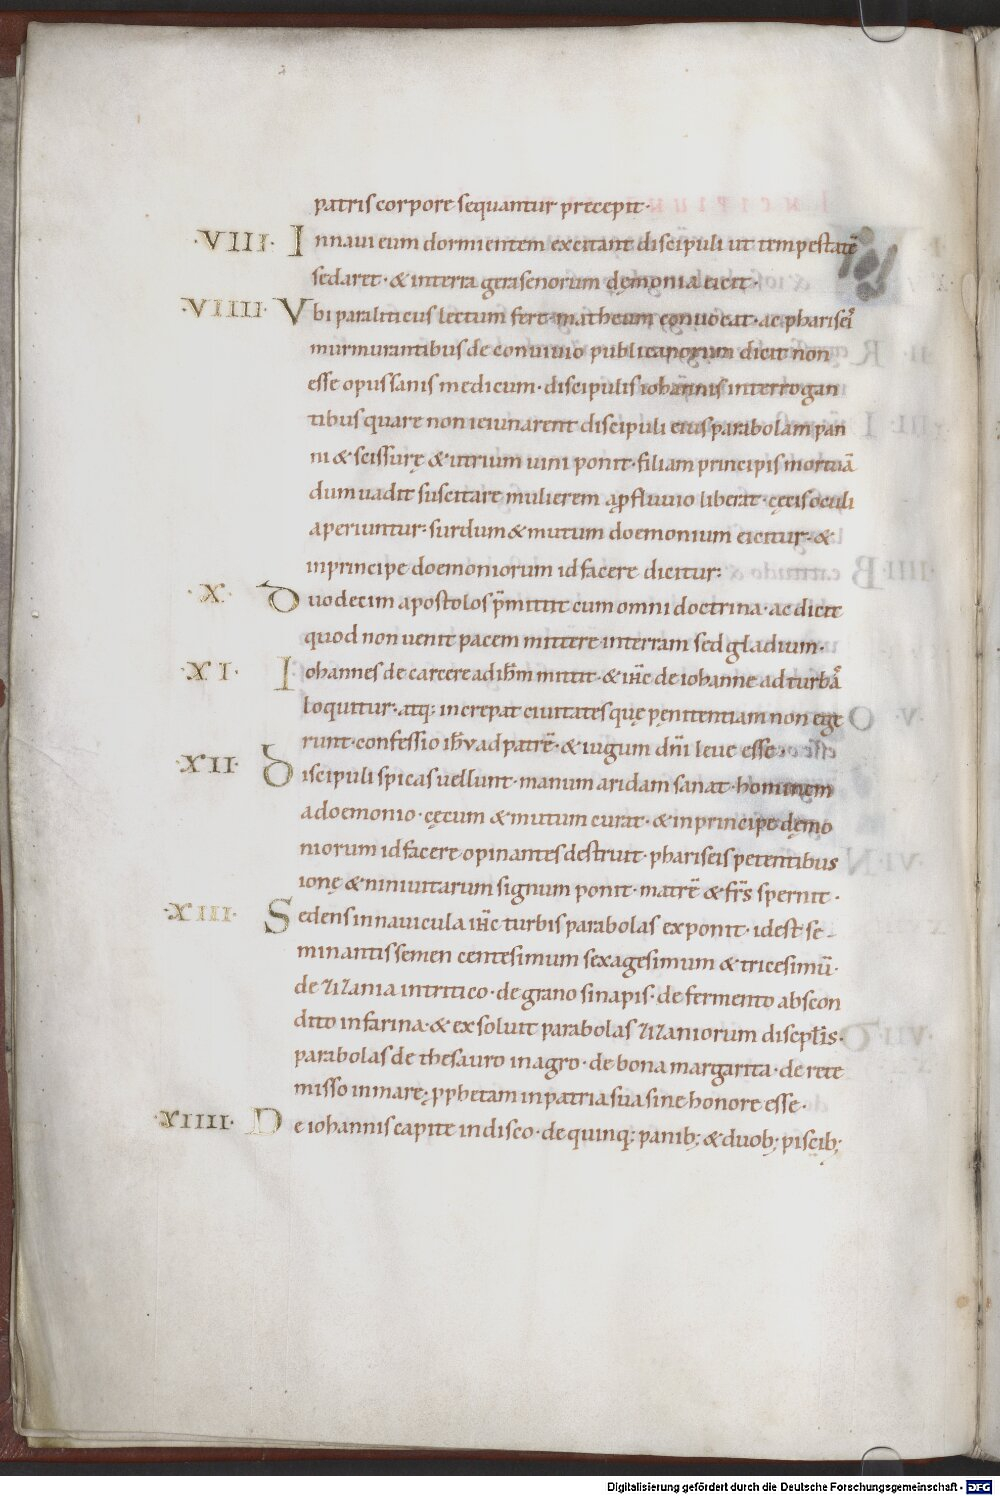 patris corpore sequantur precepit·
·VIII· In naui eum dormientem excitant discipuli ut tempestatē
sedaret· & in terra gerasenorum dęmonia eicit·
·VIIII· Vbi paraliticus lectum fert· matheum conuocat· ac pharisei
murmurantibus de conuiuio publicanorum dicit non
esse opus sanis medicum· discipulis iohannis interrogan
tibus quare non ieiunarent discipuli eius parabolam pan
ni & scissurę & utrium uini ponit· filiam principis mortuā
dum uadit suscitare mulierem a ꝓfluuio liberat· cęcis oculi
aperiuntur· surdum & mutum doemonium eicitur· &
in principe doemoniorum id facere dicitur·
·X· Duodecim apostolos p̄mittit cum omni doctrina· ac dicit
quod non uenit pacem mittere in terram sed gladium·
·XI· Iohannes de carcere ad ih̄m mittit· & ih̄c de iohanne ad turbā
loquitur· atq; increpat ciuitates quę pęnitentiam non ege
runt· confessio ih̄u ad patrē· & iugum dn̄i leue esse·
·XII· Discipuli spicas uellunt· manum aridam sanat· hominem
a doemonio· cęcum & mutum curat· & in principe dęmo
niorum id facere opinantes destruit· phariseis petentibus
ionę & niniuitarum signum ponit· matrē & fr̄s spernit·
·XIII· Sedens in nauicula ih̄c turbis parabolas exponit· id est se
minantis semen centesimum sexagesimum & tricesimū·
de zizania in tritico· de grano sinapis· de fermento abscon
dito in farina· & exsoluit parabolas zizaniorum discipl̄is·
parabolas de thesauro in agro· de bona margarita· de rete
misso in mare; ꝓphetam in patria sua sine honore esse·
·XIIII· De iohannis capite in disco· de quinq; panib; & duob; piscib;
Digitalisierung gefördert durch die Deutsche Forschungsgemeinschaft - DFG